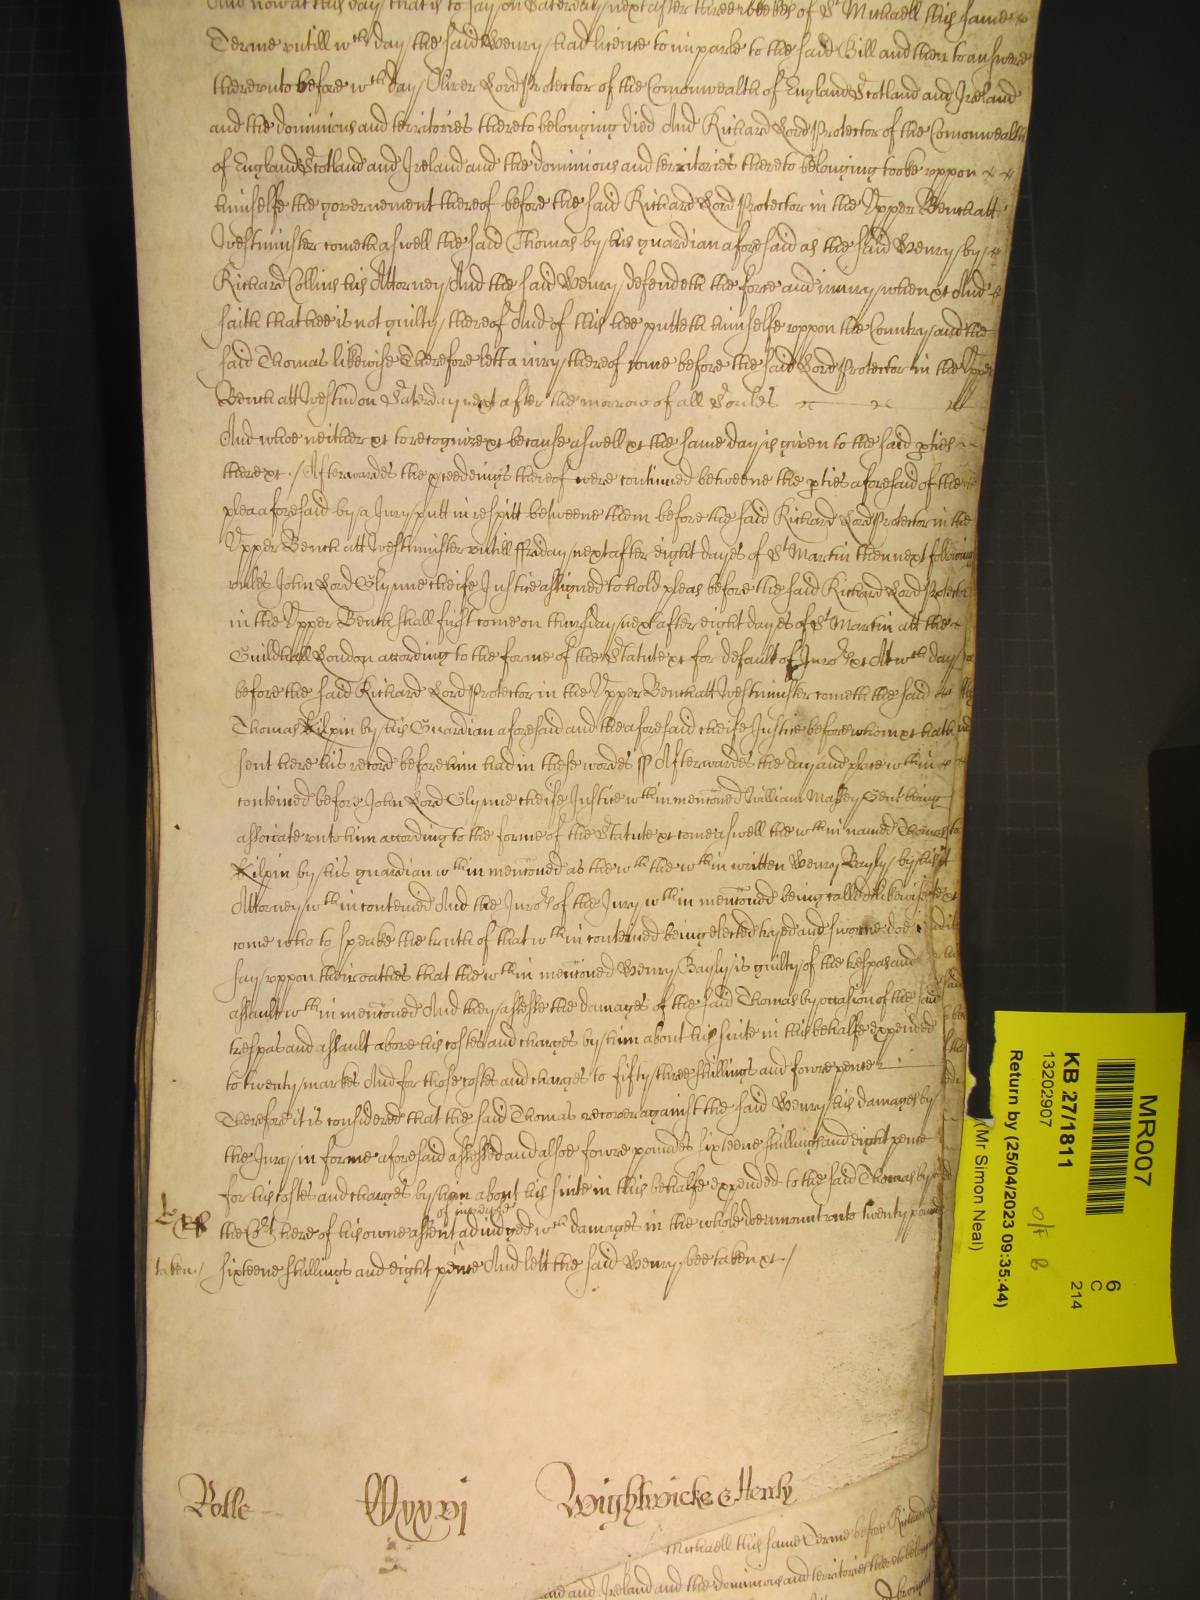 And now at this day that is to say on Saterday next after three weekes of St Michaell this same
Terme untill wch day the said Henry had licence to imparle to the said Bill and then to answere
thereunto before wch day Oliver Lord Protector of the Comonwealth of England Scotland and Ireland
and the dominions and territories thereto belonging died And Richard Lord Protector of the Comonwealth
of England Scotland and Ireland and the dominions and territories thereto belonging tooke uppon
himselfe the governement thereof before the said Richard Lord Protector in the Upper Bench att
Westminster cometh aswell the said Thomas by his guardian aforesaid as the said Henry by
Richard Collins his Attorney And the said Henry defendeth the force and iniury when &c And
saith that hee is not guilty thereof And of this hee putteth himselfe uppon the Country and the
said Thomas likewise Therefore lett a iury thereof come before the said Lord Protector in the Upper
Bench att Westm on Saterday next after the morrow of all Soules
And whoe neither &c to recognize &c because aswell &c the same day is given to the said pties
there &c / Afterwardes the pceedeings thereof were continued betweene the pties aforesaid of the
plea aforesaid by a Jury putt in respitt betweene them before the said Richard Lord Protector in the
Upper Bench att Westminster untill ffriday next after eight dayes of St Martin then next following
unles John Lord Glynne cheife Justice assigned to hold pleas before the said Richard Lord Protector
in the Upper Bench shall first come on thursday next after eight dayes of St Martin att the
Guildhall London according to the forme of the Statute &c for default of Juro's &c Att wch day
before the said Richard Lord Protector in the Upper Bench att Westminster cometh the said
Thomas Kilpin by his Guardian aforesaid and the aforesaid cheife Justice before whom &c hath
sent here his record before him had in these wordes ss Afterwardes the day and place wthin
conteined before John Lord Glynne cheife Justice wthin menconed William Massey Gent being
associate unto him according to the forme of the Statute &c come aswell the wthin named Thomas
Kilpin by his guardian wthin menconed as the wth the wthin written Henry Bayly by his
Attorney wthin conteined And the Juro's of the Jury wthin menconed being called likewise
come who to speake the truth of that wthin conteined being elected tryed and sworne doe
say uppon their oathes that the wthin menconed Henry Bayly is guilty of the trespas and
assault wthin menconed And they assesse the damages of the said Thomas by occasion of the said
trespas and assault above his costes and charges by him about his suite in this behalfe expended
to twenty markes And for those costes and charges to fifty three shillings and fowre pence
Therefore it is considered that the said Thomas recover against the said Henry his damages by
the Jury in forme aforesaid assessed and alsoe fowre poundes sixteene shillings and eight pence
for his costes and charges by him about his suite in this behalfe expended to the said Thomas by
of increase
the Cort here of his owne assent adiudged wch damages in the whole doe mount unto twenty pounds
taken / sixteene shillings and eight pence And lett the said Henry bee taken &c /
Rolle
Wightwicke & Henly
Michaell this same Terme before Richard
and Ireland and the dominions and territories thereto belonging
MR007
6
C
214
KB 27/1811
13202907
Return by (25/04/2023 09:35:44)
(Mr Simon Neal)